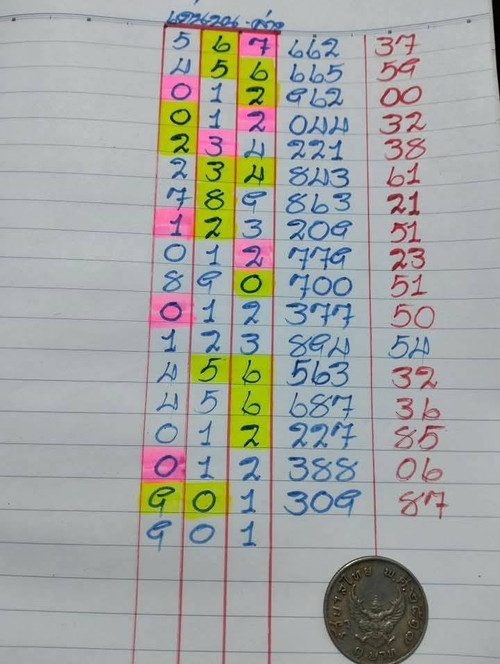 5 6 7 662 37
4 5 6 665 59
0 1 2 962 00
0 1 2 044 32
2 3 4 221 38
2 3 4 843 61
7 8 9 863 21
1 2 3 209 51
0 1 2 779 23
8 9 0 700 51
0 1 2 377 50
1 2 3 894 54
4 5 6 563 32
4 5 6 687 36
0 1 2 227 85
0 1 2 388 06
9 0 1 309 87
9 0 1
รัฐบาลไทย พ.ศ.๒๕๑๗
๑ บาท